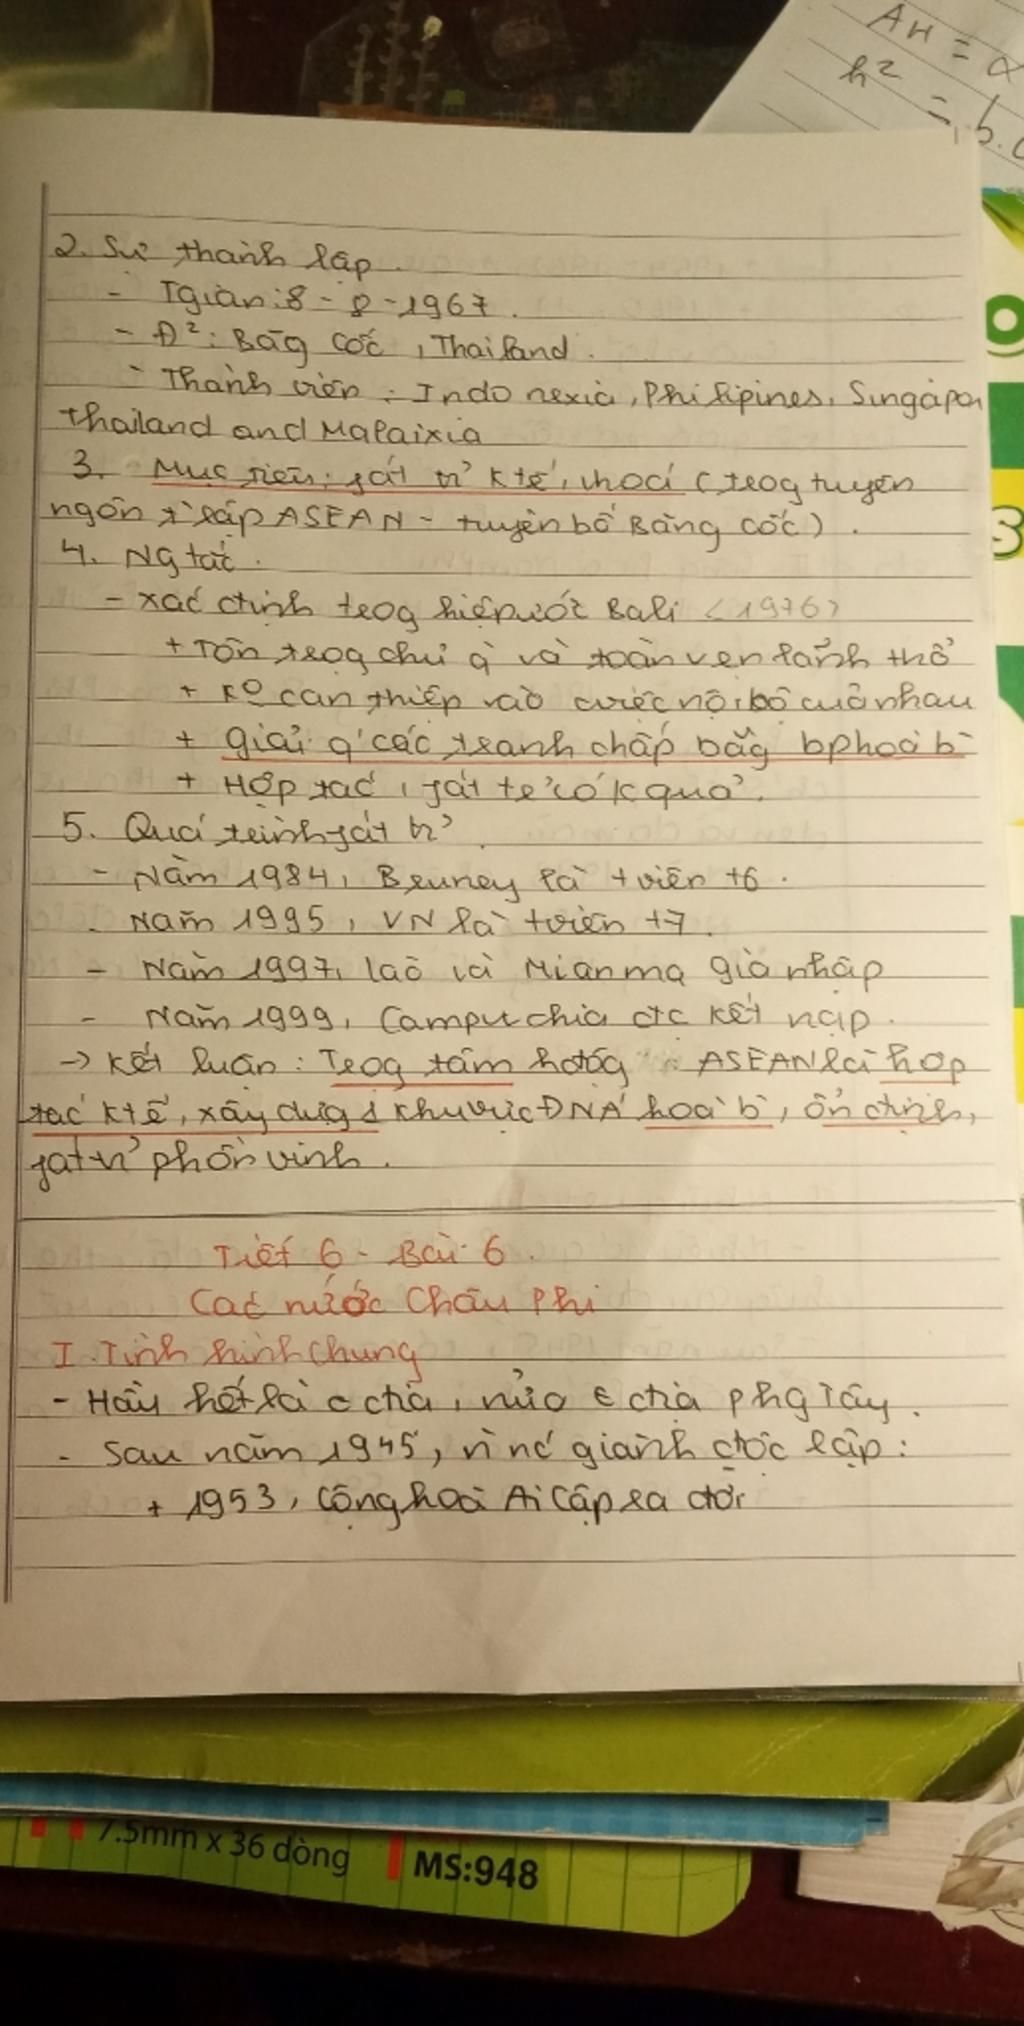 AH = 
h² = b.c
2. Sự thành lập.
- Tgian: 8 - 8 - 1967.
- Đ²: Băg Cốc, Thailand.
- Thành viên: Indonexia, Philipines, Singapor
Thailand and Malaixia
3. Mục tiêu: fát tr' ktế, vhoá (trog tuyên
ngôn t'lập ASEAN - tuyên bố Băng Cốc).
4. Ng tắc.
- xác định trog hiệp ước Bali (1976)
+ Tôn trọg chủ q' và toàn vẹn lãnh thổ
+ Ko can thiệp vào cviệc nội bộ của nhau
+ giải q' các tranh chấp bằg bphoà b`
+ Hợp tác, fát tr' có kquả.
5. Quá trình fát tr'
- Năm 1984, Bruney là tviên t6.
- Năm 1995, VN là tviên t7.
- Năm 1997, Lào và Mianma gia nhập
- Năm 1999, Campuchia đc kết nạp.
-> Kết luận: Trọg tâm hđộg ASEAN là hợp
tác ktế, xây dựg 1 khu vực ĐNÁ hoà b`, ổn định,
fát tr' phồn vinh.
Tiết 6 - Bài 6.
Các nước Châu Phi
I. Tình hình chung
- Hầu hết là c địa, nửa c địa phg Tây.
- Sau năm 1945, n` nc' giành độc lập:
+ 1953, Cộng hoà Ai Cập ra đời
7.5mm x 36 dòng
MS:948